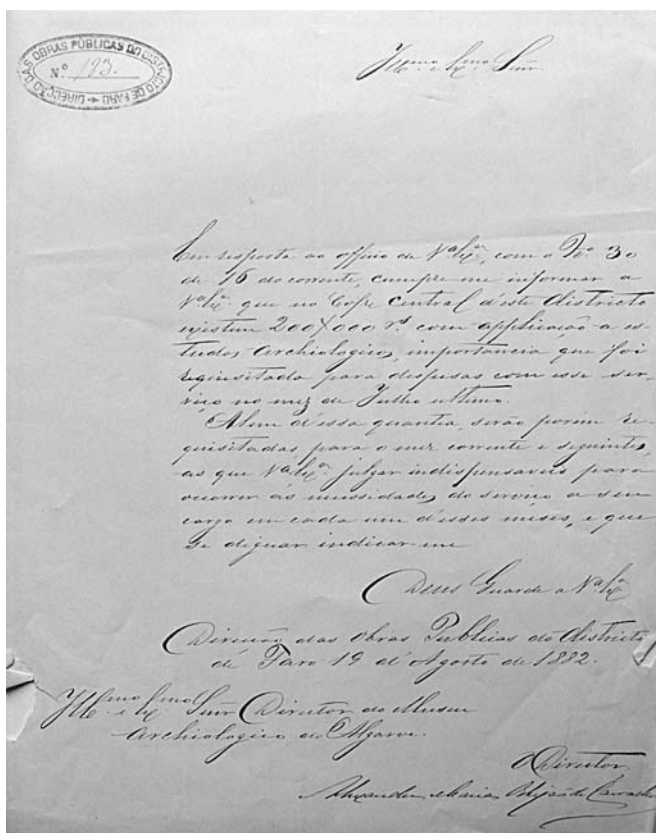 DIRECÇÃO DAS OBRAS PUBLICAS DO DISTRICTO DE FARO
Nº 193.
Illmo e Exmo Snr.
Em resposta ao officio de Vª Exª, com o Nº 30
de 16 do corrente, cumpre me informar a
Vª Exª que no Cofre Central d'este Districto
existem 200$000 rs com applicação a es-
tudos Archiologicos, importancia que foi
requisitada para dispesas com esse ser-
viço no mez de Julho ultimo.
Alem d'essa quantia, serão porem re-
quisitadas para o mez corrente e seguintes,
as que Vª Exª julgar indispensaveis para
occorrer ás necessidades do serviço a seu
cargo em cada um d'esses meses, e que
se dignar indicar-me
Deus Guarde a Vª Exª
Direcção das Obras Publicas do Districto
de Faro 19 d'Agosto de 1882.
Illmo e Exmo Snr Director do Museu
Archiologico do Algarve.
O Director
Maria